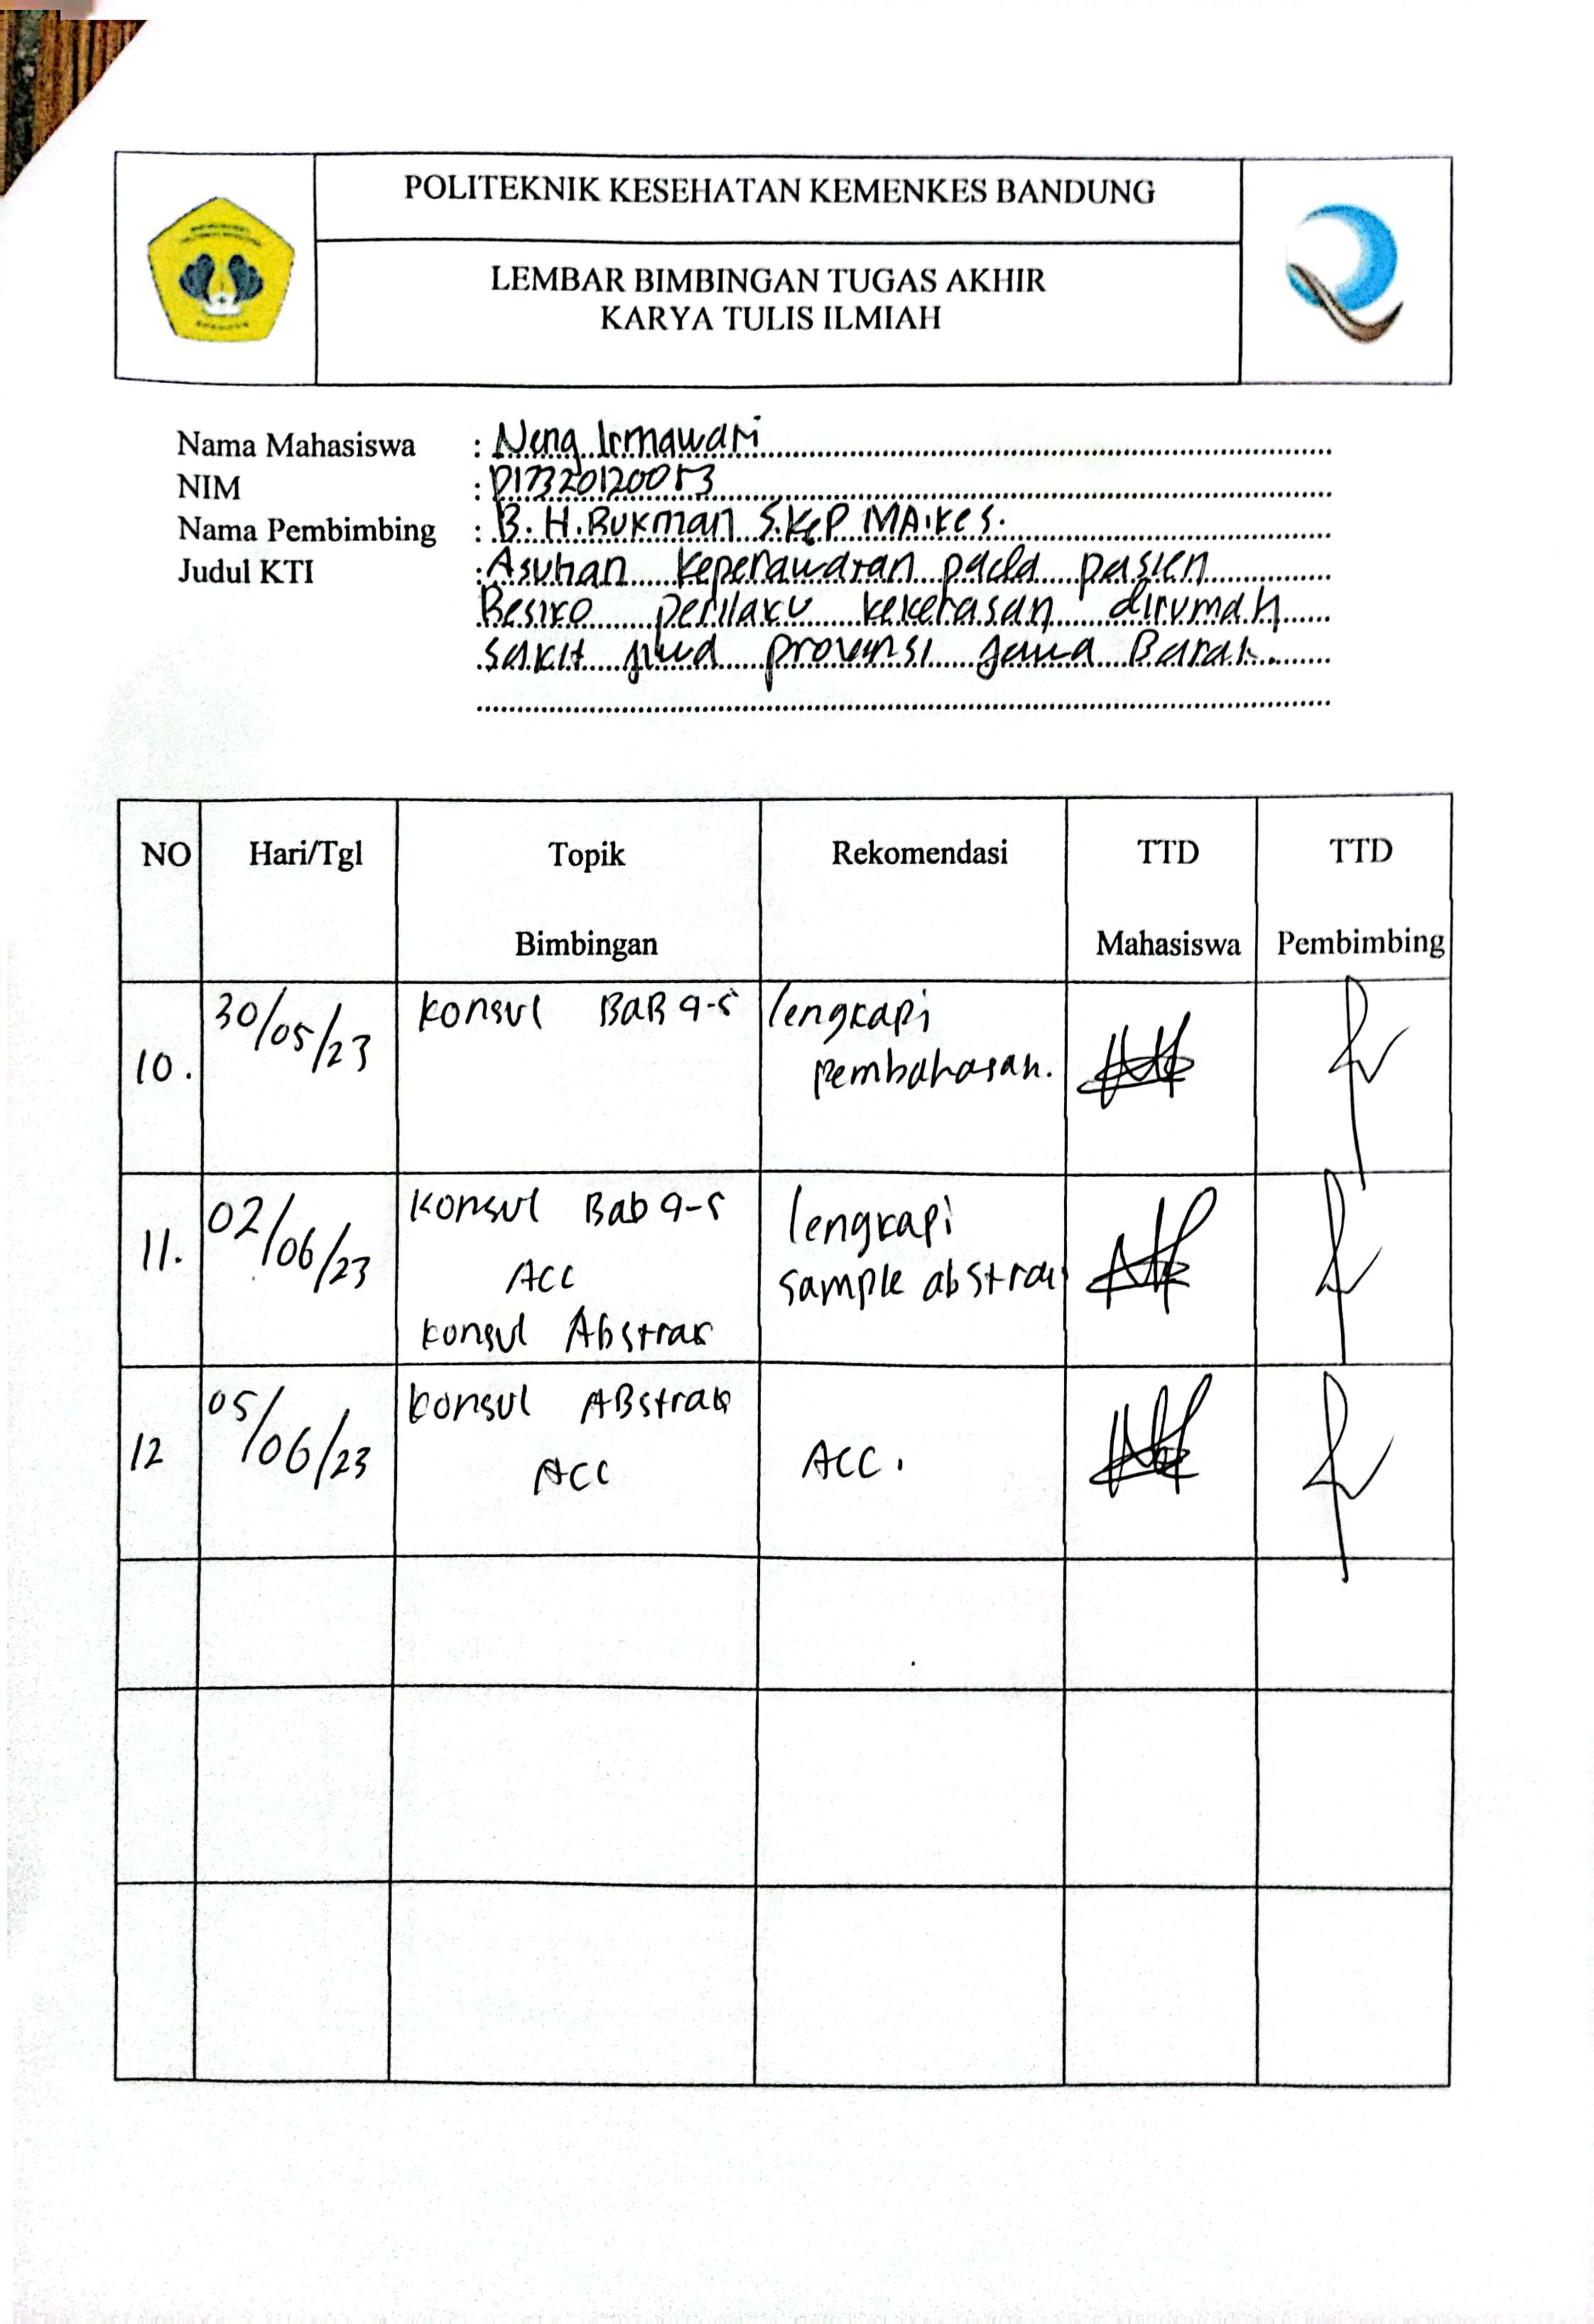 POLITEKNIK KESEHATAN KEMENKES BANDUNG
LEMBAR BIMBINGAN TUGAS AKHIR
KARYA TULIS ILMIAH
Nama Mahasiswa : Neng Irmawari
NIM : P17320120053
Nama Pembimbing : B. H. Rukman S.Kep MA.Kes.
Judul KTI : Asuhan keperawatan pada pasien
Resiko perilaku kekerasan dirumah
sakit jiwa provinsi jawa Barat
NO Hari/Tgl Topik Rekomendasi TTD TTD
Bimbingan Mahasiswa Pembimbing
10. 30/05/23 Konsul BAB 4-5 lengkapi
pembahasan.
11. 02/06/23 Konsul Bab 4-5 lengkapi
ACC sample abstrak
konsul Abstrak
12 05/06/23 konsul ABstrak
ACC ACC.